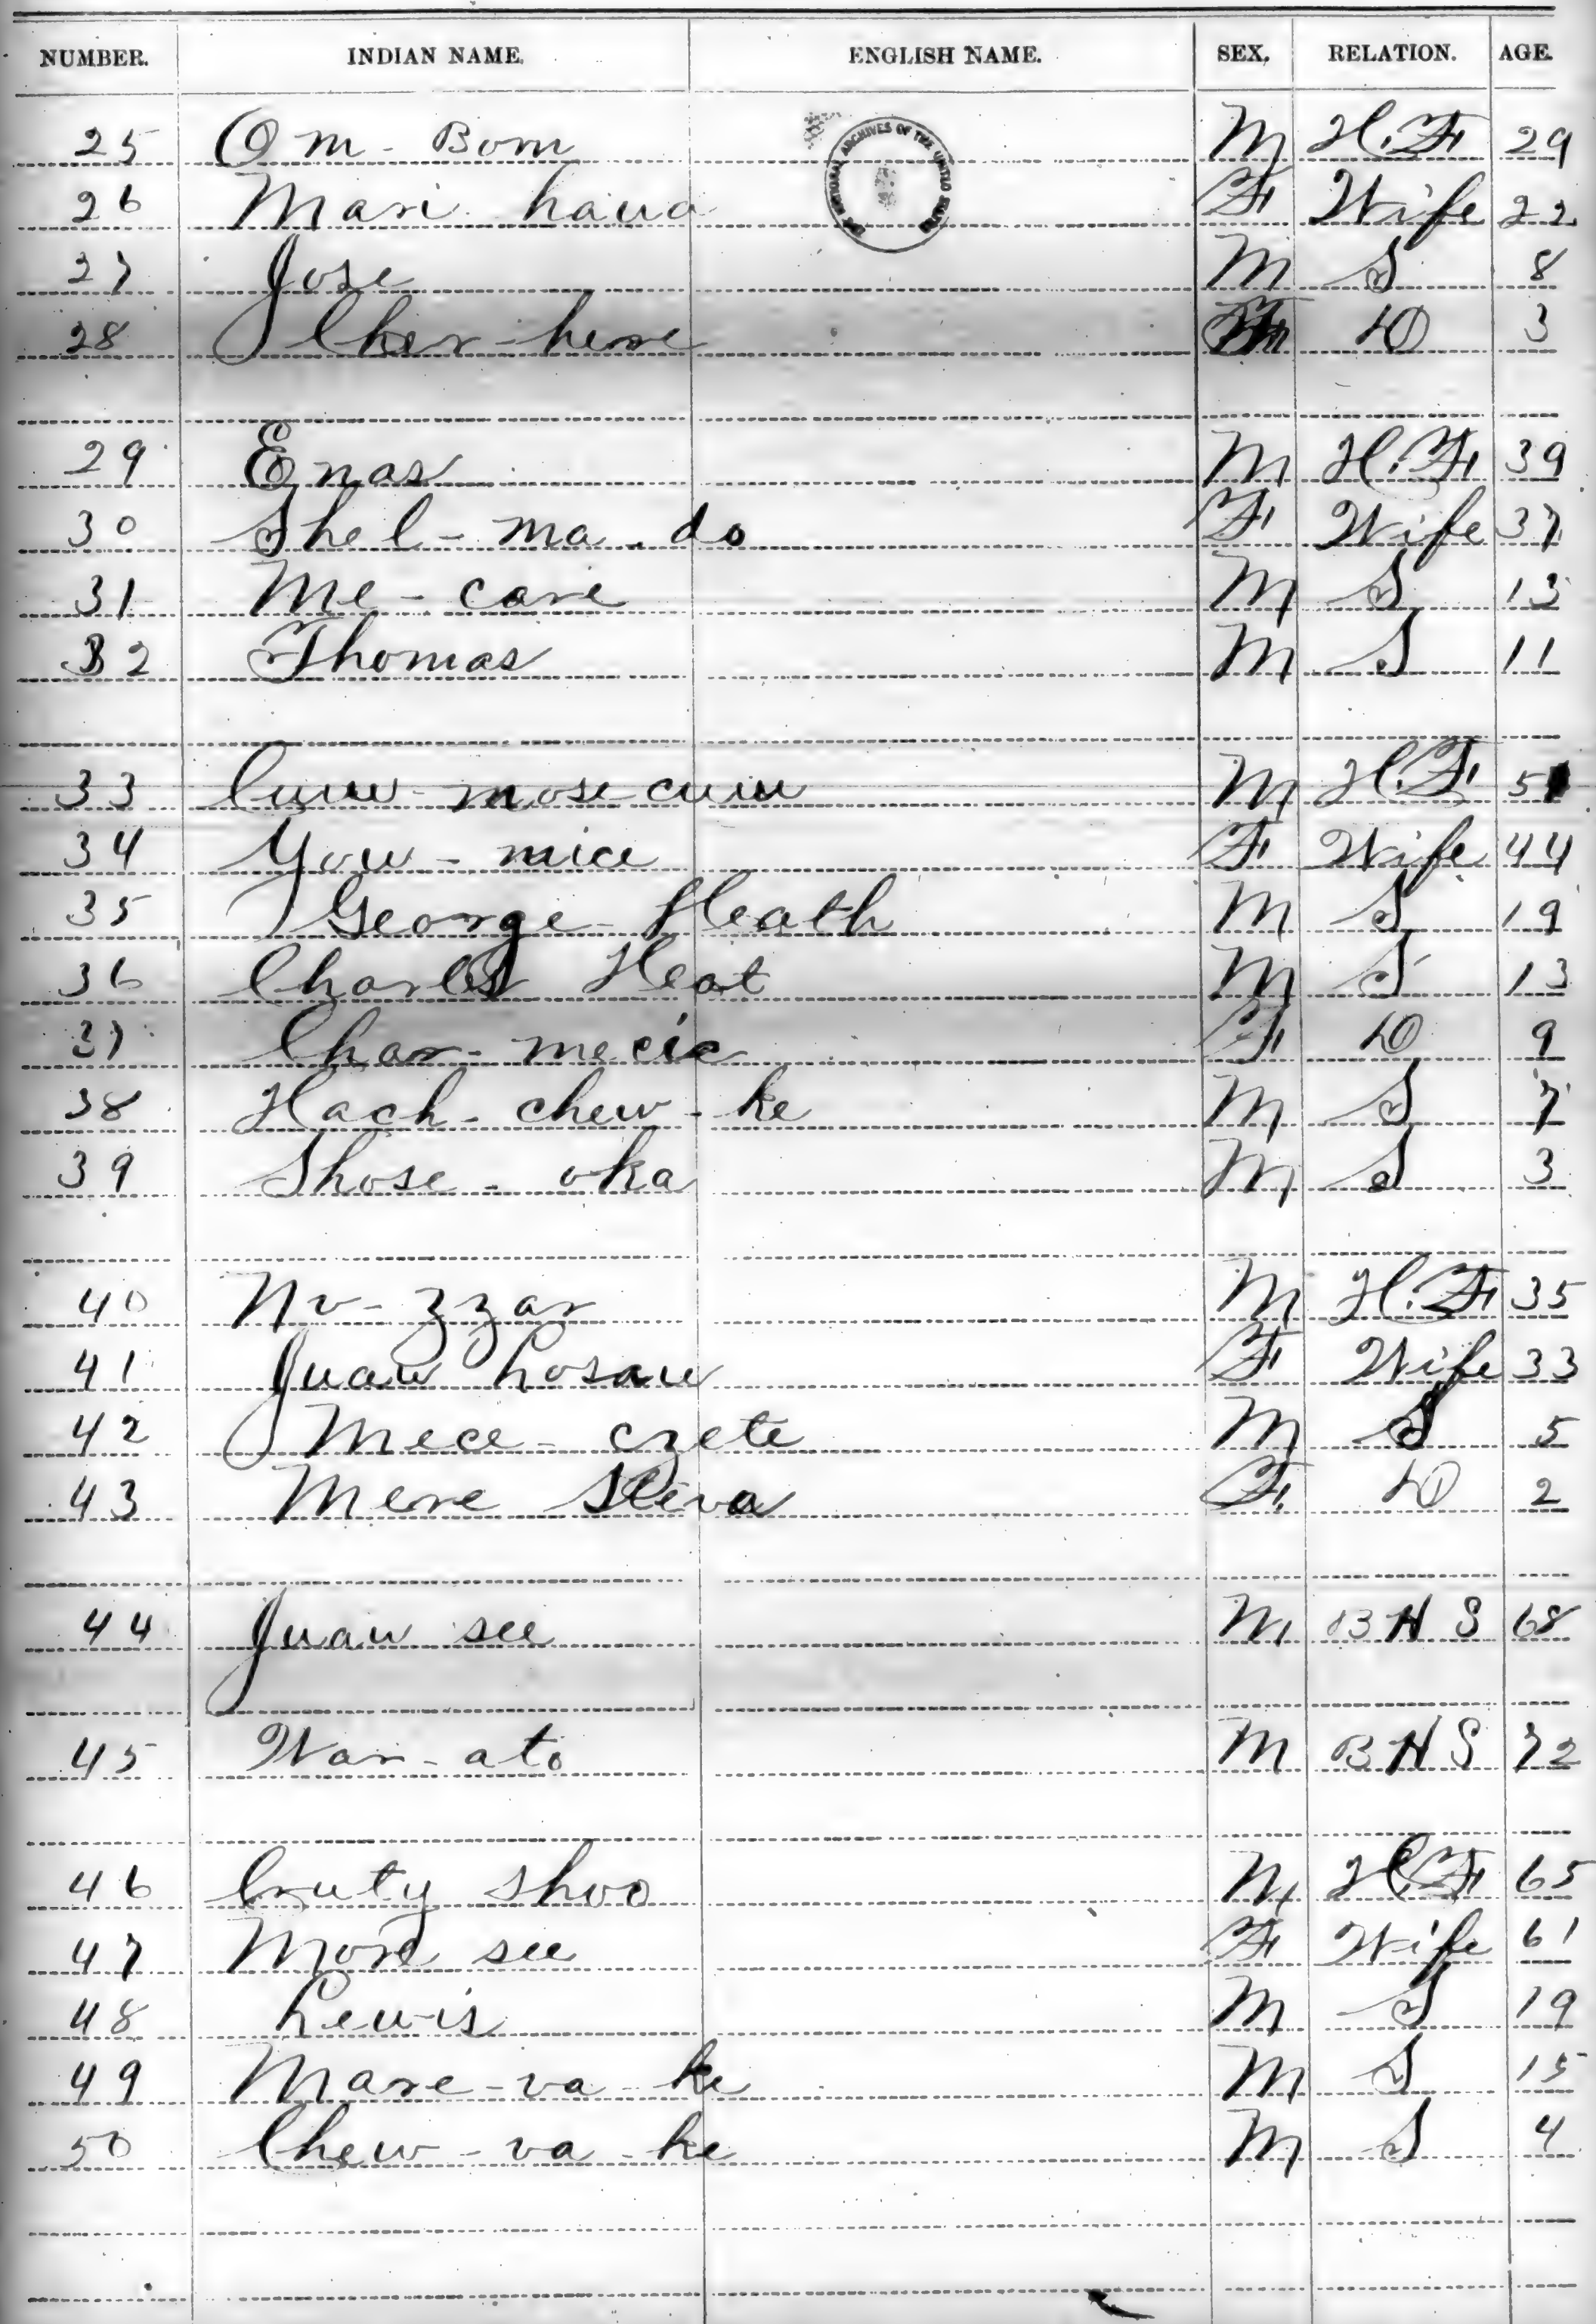 NUMBER. INDIAN NAME. ENGLISH NAME. SEX. RELATION. AGE.
THE NATIONAL ARCHIVES OF THE UNITED STATES
25 Om - Bom M H.F 29
26 Mari haua F Wife 22
27 Jose M S 8
28 Cher-here F D 3
29 Enas M H.F 39
30 Shel - ma - do F Wife 37
31 Me - care M S 13
32 Thomas M S 11
33 mose M H.F 51
34 Yow - mice F Wife 44
35 George Heath M S 19
36 Charles Heat M S 13
37 Char - mecie F D 9
38 Hach - chew - ke M S 7
39 Shose - oka M S 3
40 Nv - zzar M H.F 35
41 Juaw Losaw F Wife 33
42 Mece - czete M S 5
43 Mere Sleva F. D 2
44 Juaw see M B H S 68
45 War - ato M B H S 72
46 Cruty Shoo M H.F 65
47 More see F Wife 61
48 Lewis M S 19
49 Mare - va - ke M S 15
50 Chew - va - ke M S 4